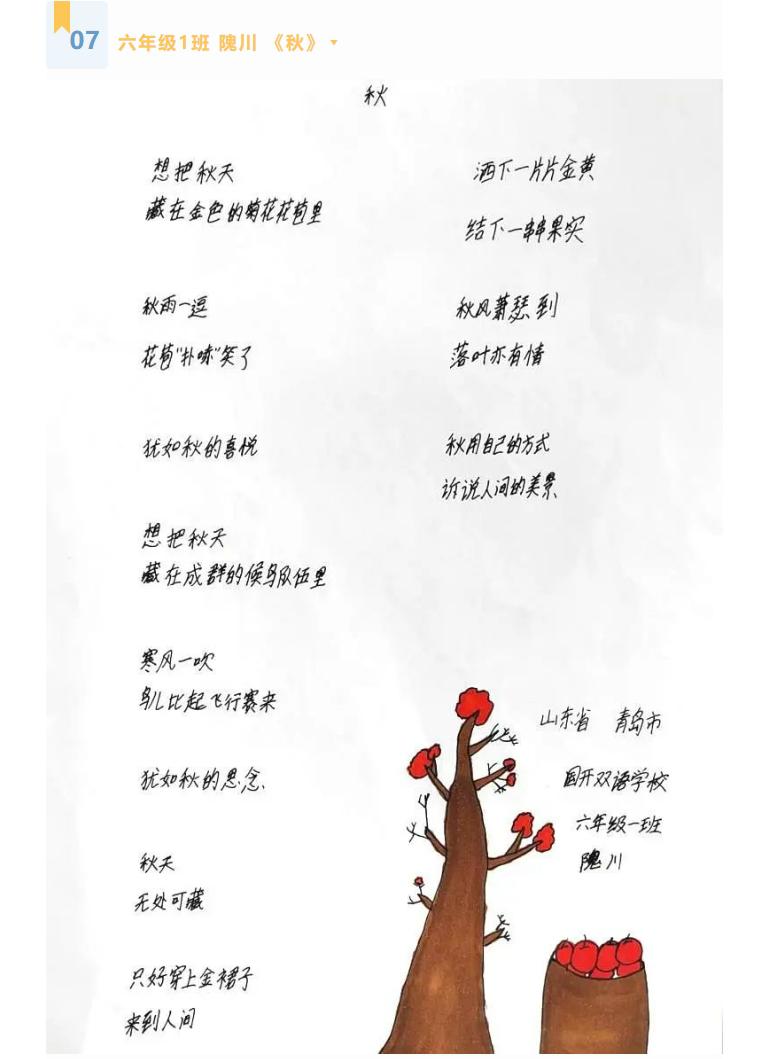 07
六年级1班 隗川 《秋》
秋
想把秋天
藏在金色的菊花花苞里
秋雨一逗
花苞“扑哧”笑了
犹如秋的喜悦
想把秋天
藏在成群的候鸟队伍里
寒风一吹
鸟儿比起飞行赛来
犹如秋的思念
秋天
无处可藏
只好穿上金裙子
来到人间
洒下一片片金黄
结下一串串果实
秋风萧瑟到
落叶亦有情
秋用自己的方式
诉说人间的美景
山东省 青岛市
国开双语学校
六年级一班
隗川